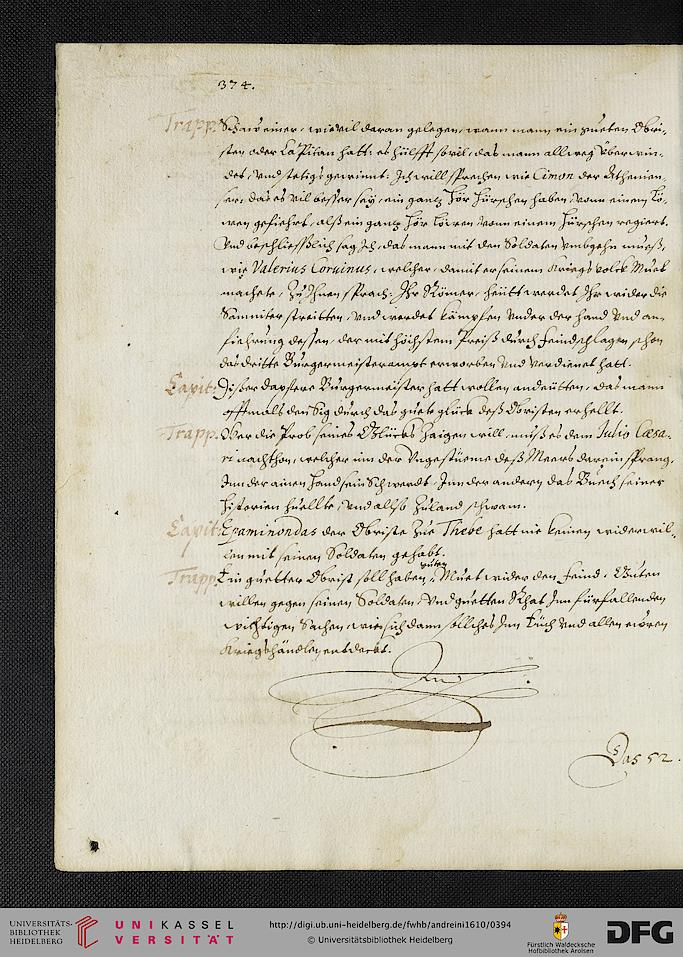 374.
Trapp: Schaw einer, wievil daran gelegen, wann mann ein gueten Obri-
sten oder Capitan hatt: es hülfft sovil, das mann allweg überwin-
det, und stetigs gewinnt: Ich will sprechen wie Cimon der Athenien-
ser, das es vil besser sey, ein gantz Hör Hürschen haben, vonn einem Lö-
wen gefiehrt, alß ein gantz Hör Löwen, vonn einem Hürschen regiert.
Und beschließlich sag Ich, das mann mit den Soldaten umbgehn mueß,
wie Valerius Coruinus, welcher, damit er seinem Kriegsvolck Muet
machete, zu Ihnen sprach: Ihr Römer, heütt werdet Ihr wider die
Samniter streitten, und werdet kämpfen under der hand und an-
fiehrung dessen, der mit höchstem Preiß durch feindschlagen schon
das dritte Burgermeisterampt erworben und verdienet hatt.
Capit: Dißer dapffere Burgermeister hatt wollen andeütten, das mann
offtmals den Sig durch das guete glück deß Obristen erhellt.
Trapp. Wer die Prob seines Glücks zaigen will, muß es dem Julio Cæsa-
ri nachthon, welcher inn der Ungestüeme deß Meers darein sprang,
Inn der ainen Hand sein Schwerdt, Inn der andern das Buech seiner
Historien huellte, und allso zu Land schwam.
Capit: Epaminondas der Obriste zue Thebe hatt nie keinen widerwil-
len mit seinen Soldaten gehabt.
Trapp: Ein guetter Obrist soll haben, gueten Muet wider den feind, Gueten
willen gegen seinen Soldaten, Und guetten Rhat Inn fürfallenden
wichtigen Sachen, wie sich dann solliches Inn Eüch und allen eüren
Kriegshändlen entdeckt.
End
Das 52.
UNIVERSITÄTS-
BIBLIOTHEK
HEIDELBERG
UNIKASSEL
VERSITÄT
http://digi.ub.uni-heidelberg.de/fwhb/andreini1610/0394
© Universitätsbibliothek Heidelberg
Fürstlich Waldecksche
Hofbibliothek Arolsen
DFG